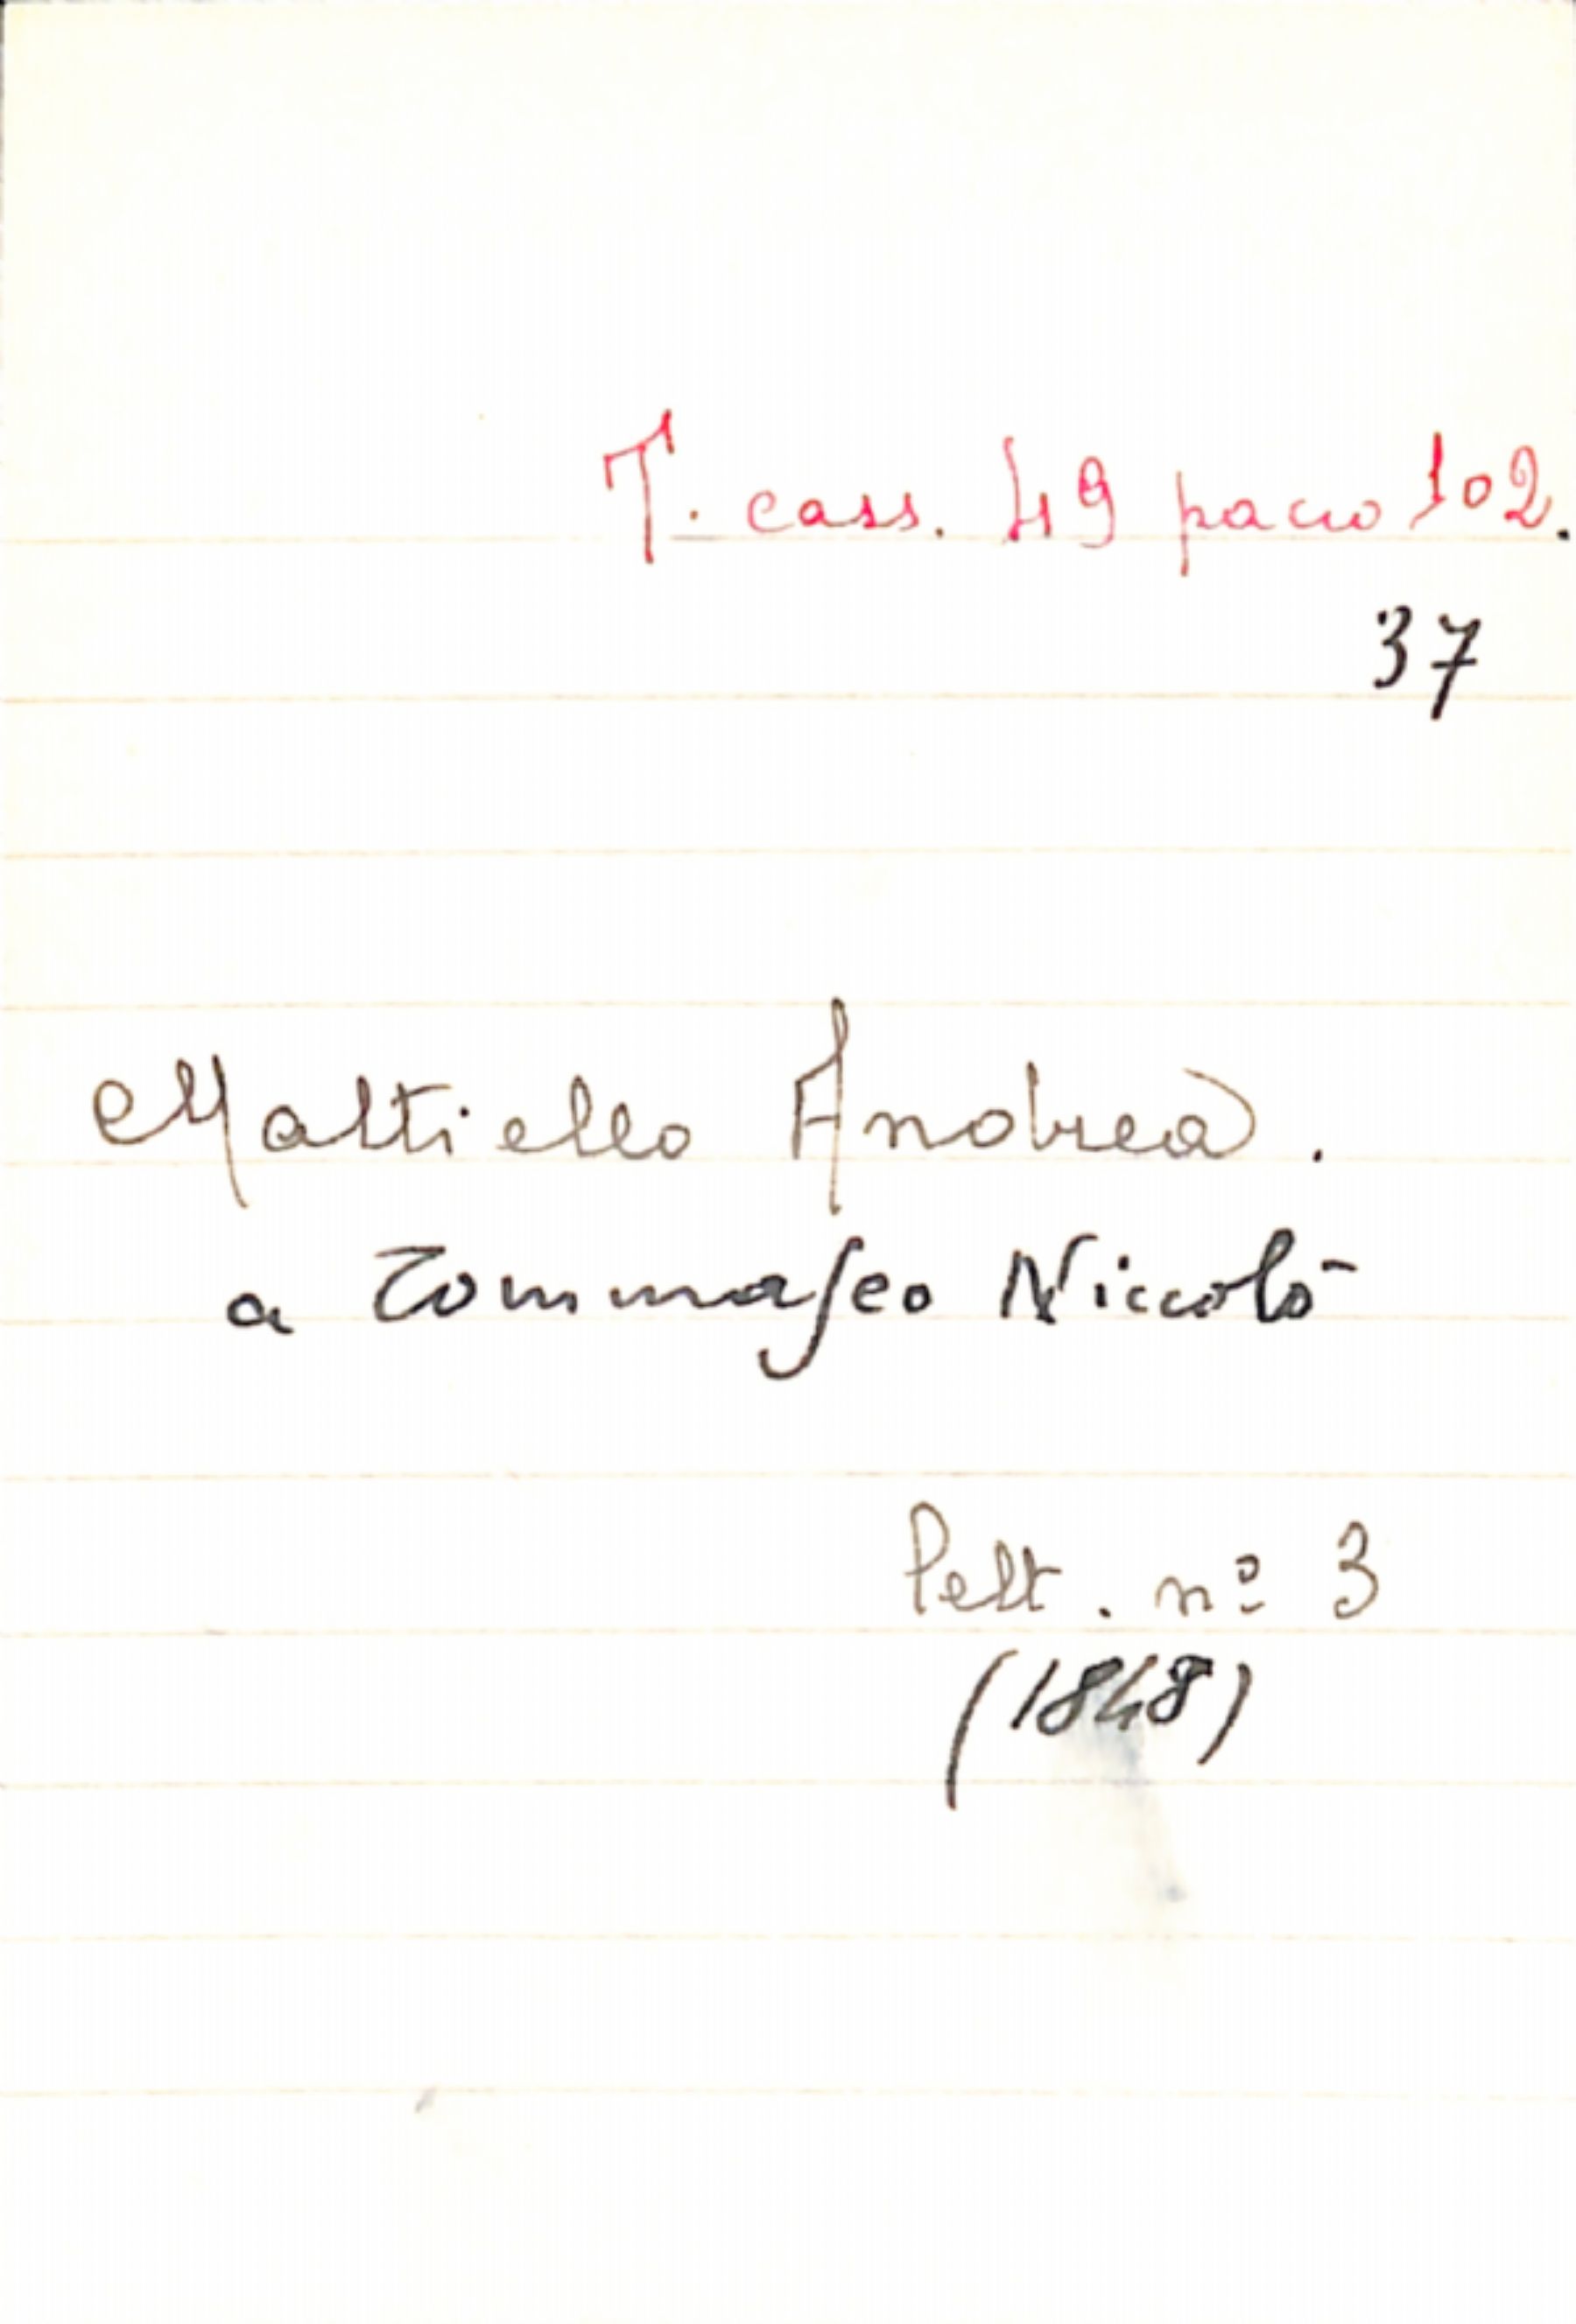 T. cass. 49 pacco 102.
37
Mattiello Andrea.
a Tommaseo Niccolò
lett. nº 3
(1848)